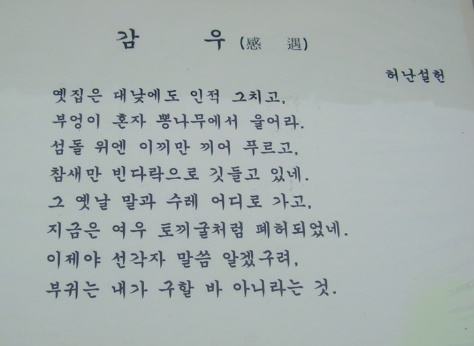 감 우 (感 遇)
허난설헌
옛집은 대낮에도 인적 그치고,
부엉이 혼자 뽕나무에서 울어라.
섬돌 위엔 이끼만 끼어 푸르고,
참새만 빈다락으로 깃들고 있네.
그 옛날 말과 수레 어디로 가고,
지금은 여우 토끼굴처럼 폐허되었네.
이제야 선각자 말씀 알겠구려,
부귀는 내가 구할 바 아니라는 것.